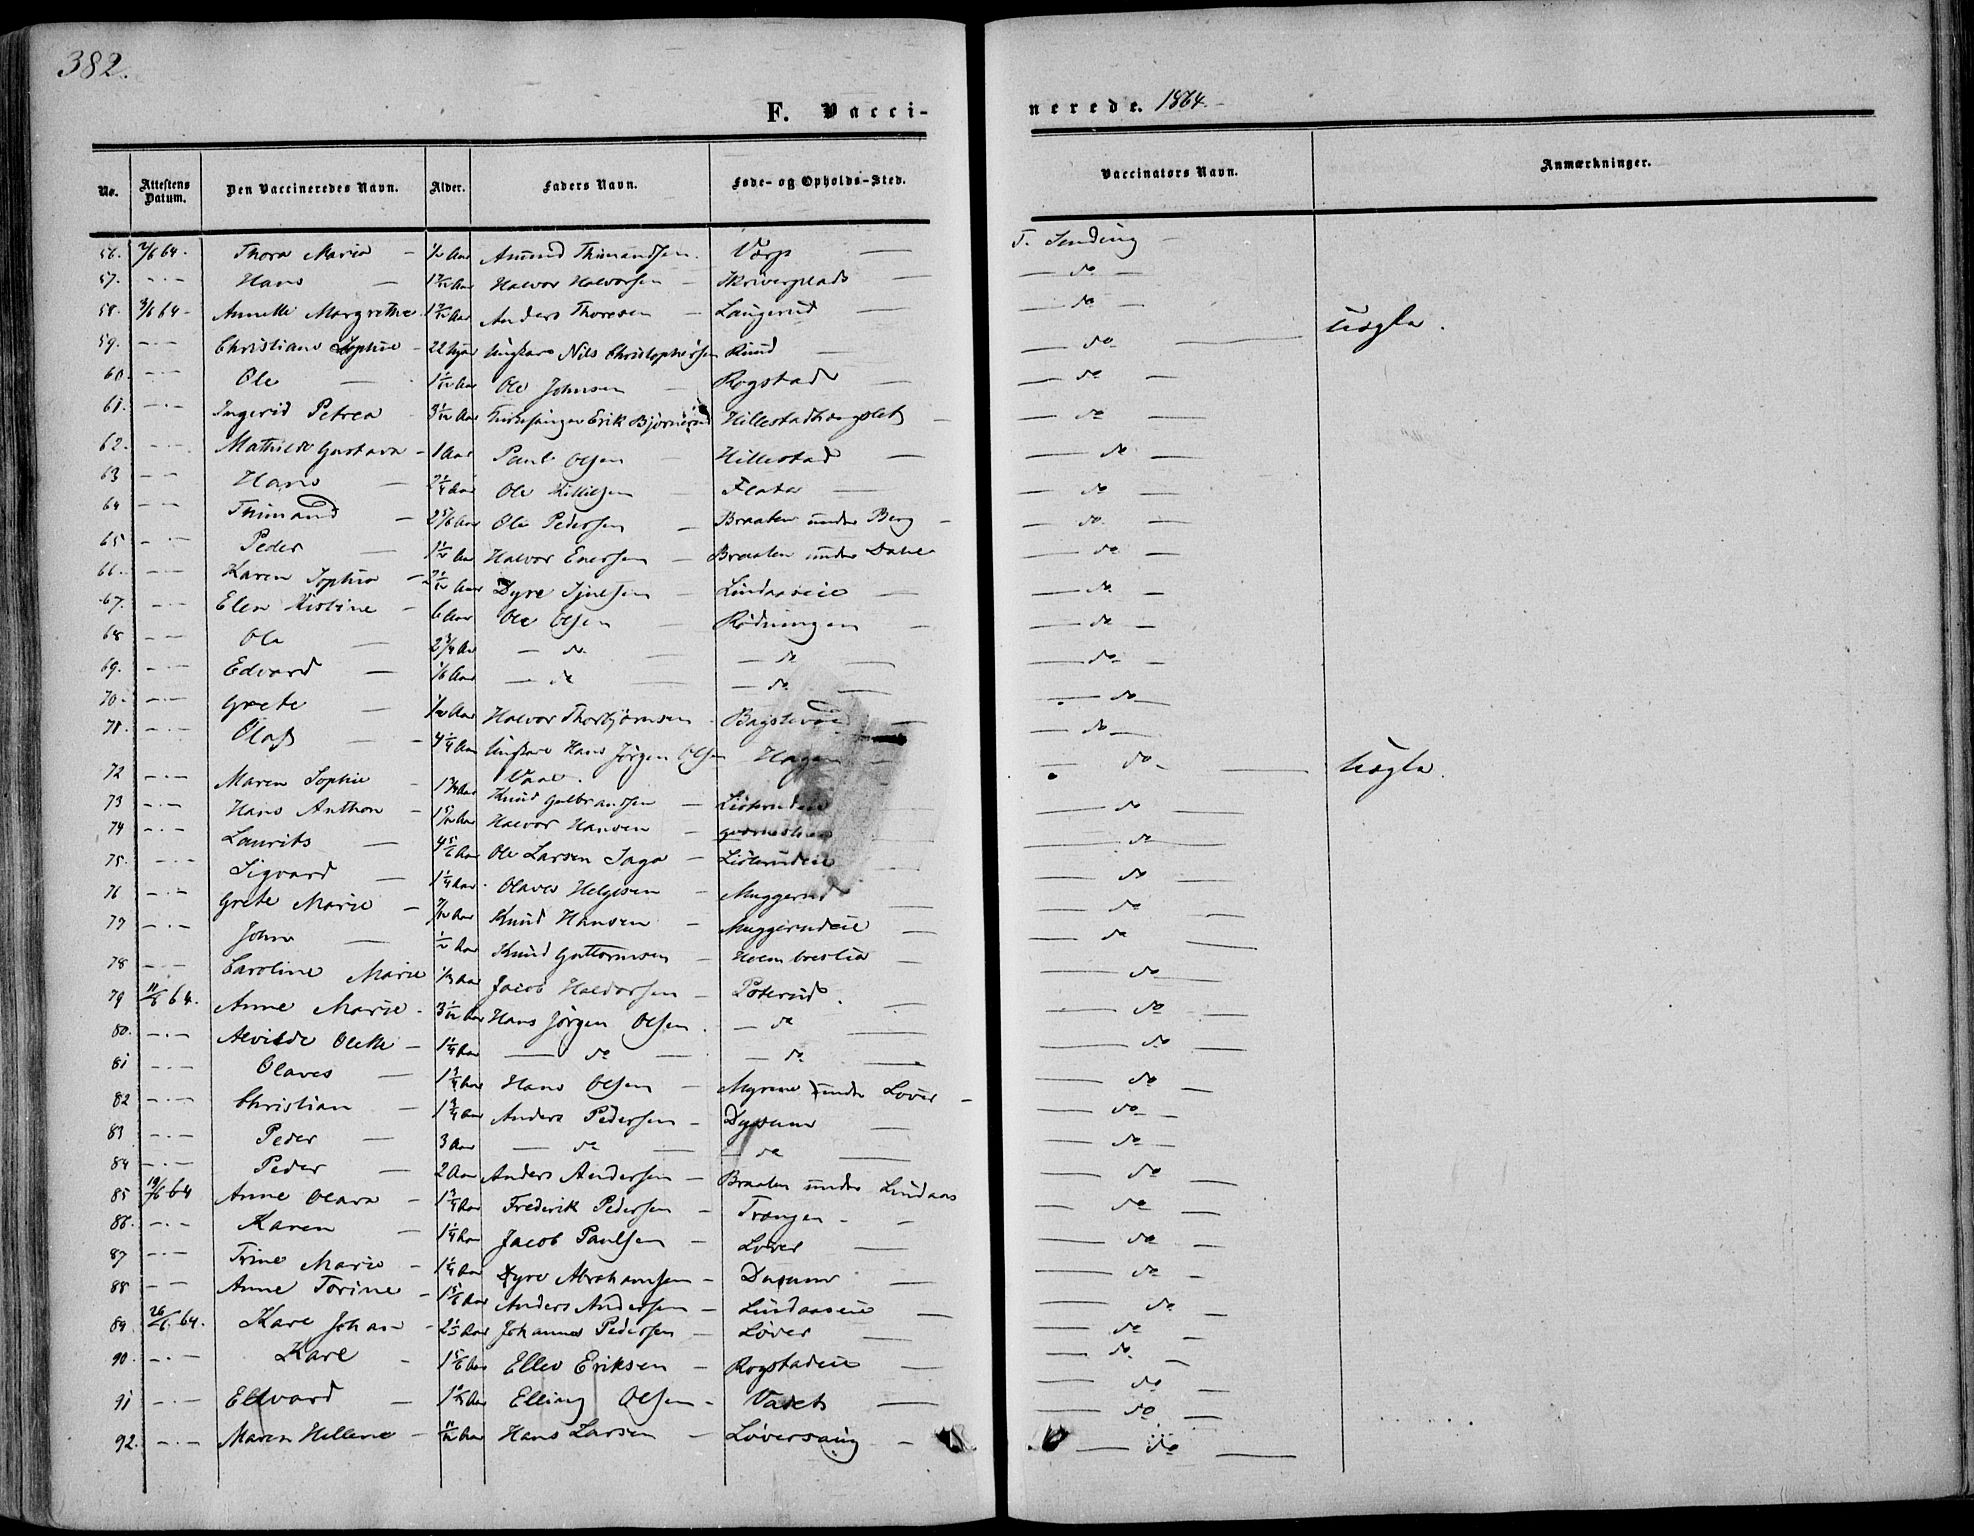 382.
F. Vacci-
nerede. 1864.
No. Attestens Datum. Den Vaccineredes Navn. Alder. Faders Navn. Føde- og Opholds-Sted. Vaccinators Navn. Anmærkninger.
56. 2/6 64. Thora Maria - 1/2 Aar Amund Thimandsen. Varp — T. Sending —
57. -.- Hans — Aar Halvor Halvorsen - Skriverplads — do —
58. 3/6 64 - Annette Margrethe Aar Anders Thoresen - Langerud — do —
59. -.- Christiane Sophie - 22 Ungkarl Nils Christophersen Ruud — do — Uægte.
60. -.- Ole — Aar Ole Johnsen - Rogstad — do —
61. -.- Ingerid Petrea Aar Kirkesanger Erik Bjørnerud Hillestadhougslet — do —
62. -.- Mathilde Gustava - 1 Aar Paul Olsen - Hillestad — do —
63 -- Hans — 2 1/4 Aar Ole Killilsen - Flata — do —
64 -- Thimand — 2 5/6 Aar Ole Pedersen - Braaten under Berg - do —
65 -.- Peder — 1 1/2 Aar Halvor Enersen - Braaten under Dahl — do —
66. -.- Karen Sophia - Aar Dyre Sjulsen - Lindaaseie — do —
67. -.- Elen Kistine - 6 Aar Ole Olsen - Rødningen — do —
68 -- Ole — 2 3/4 Aar — do — do — do —
69. -.- Edvard — 1/6 Aar — do — do — do —
70. -.- Grete — 1/2 Aar Halvor Thorbjørnsen - — do —
71. -.- Olaf — 4 1/4 Aar Ungkarl Hans Jørgen Olsen Hagen — do — Uægte.
Vaal.
72 -.- Maren Sophie - 1 3/4 Aar Knud Gulbrandsen - Listerudeie — do —
73 -.- Hans Anthon - Aar Halvor Hansen - — do —
74 -.- Laurits — 4 5/6 Aar Ole Larsen Saga - Listerudeie — do —
75. -.- Sigvard — 1 1/4 Aar. Olaves Helgesen - Muggerud — do —
76 -.- Grete Marie - 7/12 Aar Knud Hansen - Muggerudeie — do —
77 -.- John — 1/2 Aar Knud Guttormsen - Holmbreslia — do —
78 -.- Caroline Marie Aar Jacob Haldorsen - Poterud. — do —
79 11/6 64. Anne Marie. 3 1/12 Aar Hans Jørgen Olsen. — do — do —
80. -.- Alvilde Olette - 1 1/4 Aar — do — do — do —
81 -.- Olaves — 1 3/4 Aar Hans Olsen - Myrene under Løver — do —
82 -.- Christian — 1 3/4 Aar Anders Pedersen - Dysum — do —
83 -.- Peder — 3 Aar — do — do — do —
84 -.- Peder — 2 Aar Anders Andersen - Braaten under Lindaas — do —
85 19/6 64 Anne Olava - 1 3/4 Aar Frederik Pedersen - Trangen — do —
86. -.- Karen — 1 1/4 Aar Jacob Paulsen - Løver — do —
87 -.- Trine Marie - 1 1/4 Aar Dyre Abrahamsen - Dusum — do —
88 -- Anne Torine - 1 5/6 Aar Anders Andersen - Lindaaseie — do —
89 26/6 64. Karl Johan - 2 1/3 Aar Johannes Pedersen - Løver — do —
90 -.- Karl — 1 5/6 Aar Ellev Eriksen - Rogstadeie — do —
91 -.- Edvard — Aar Elling Olsen - Vadet — do —
92. -.- Maren Hellene - 11/12 Aar Hans Larsen - Løversaug — do —